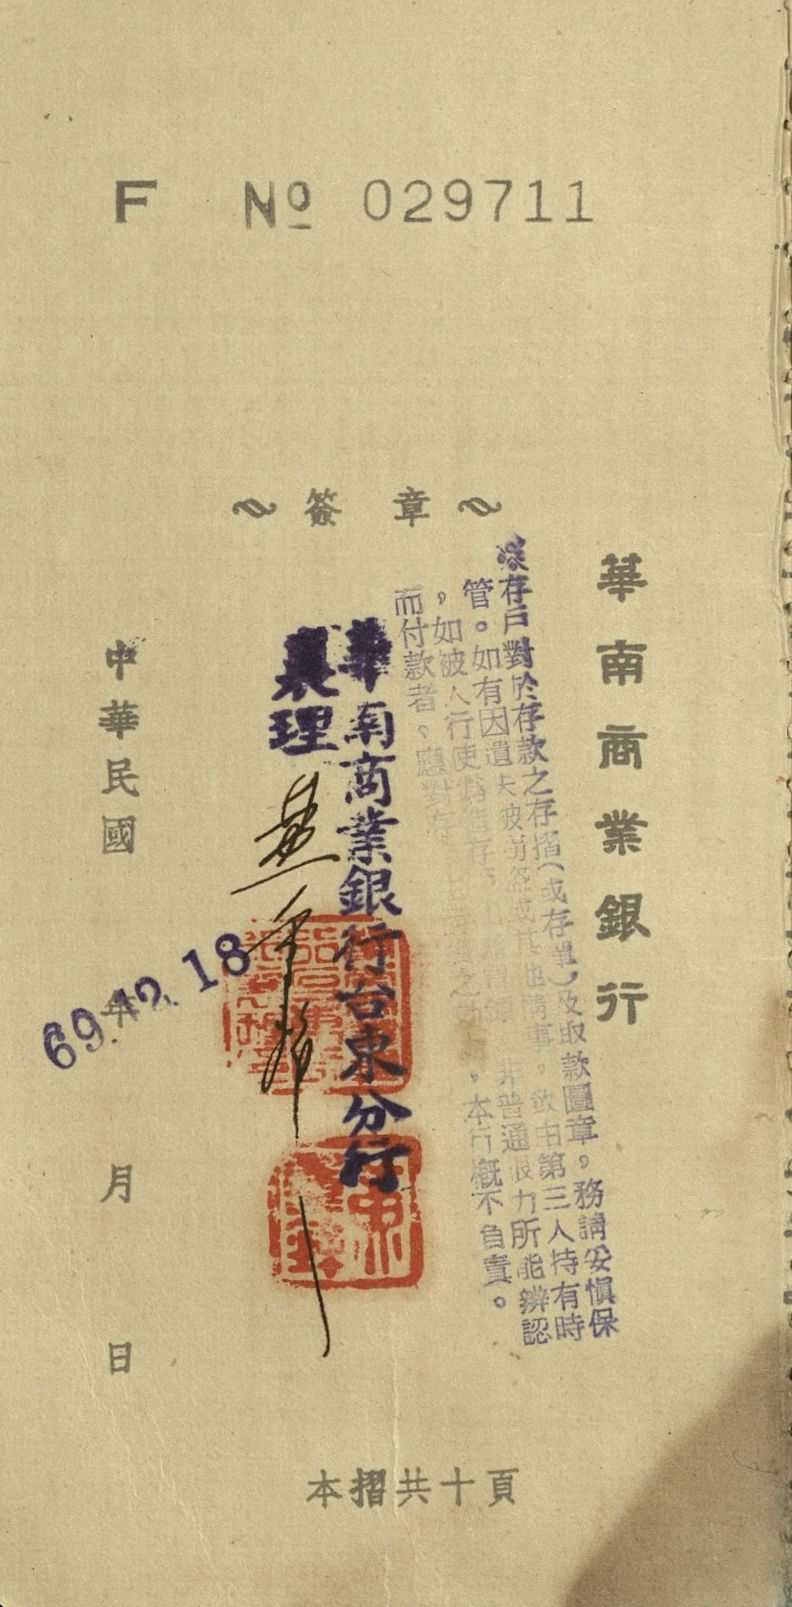 F № 029711
簽 章
華南商業銀行
存戶對於存款之存摺(或存單)及取款圖章,務請妥慎保
管。如有因遺失被竊盜或其他情事,致由第三人持有時
,如被人行使 非普通眼力所能辨認
而付款者,應對存 ,本行概不負責。
華南商業銀行台東分行
襄理
中華民國 年 月 日
69.12.18
本摺共十頁